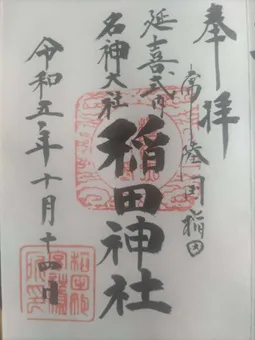 奉拝
常陸国稲田
延喜式内
名神大社
稲田神社
令和五年十月十四日